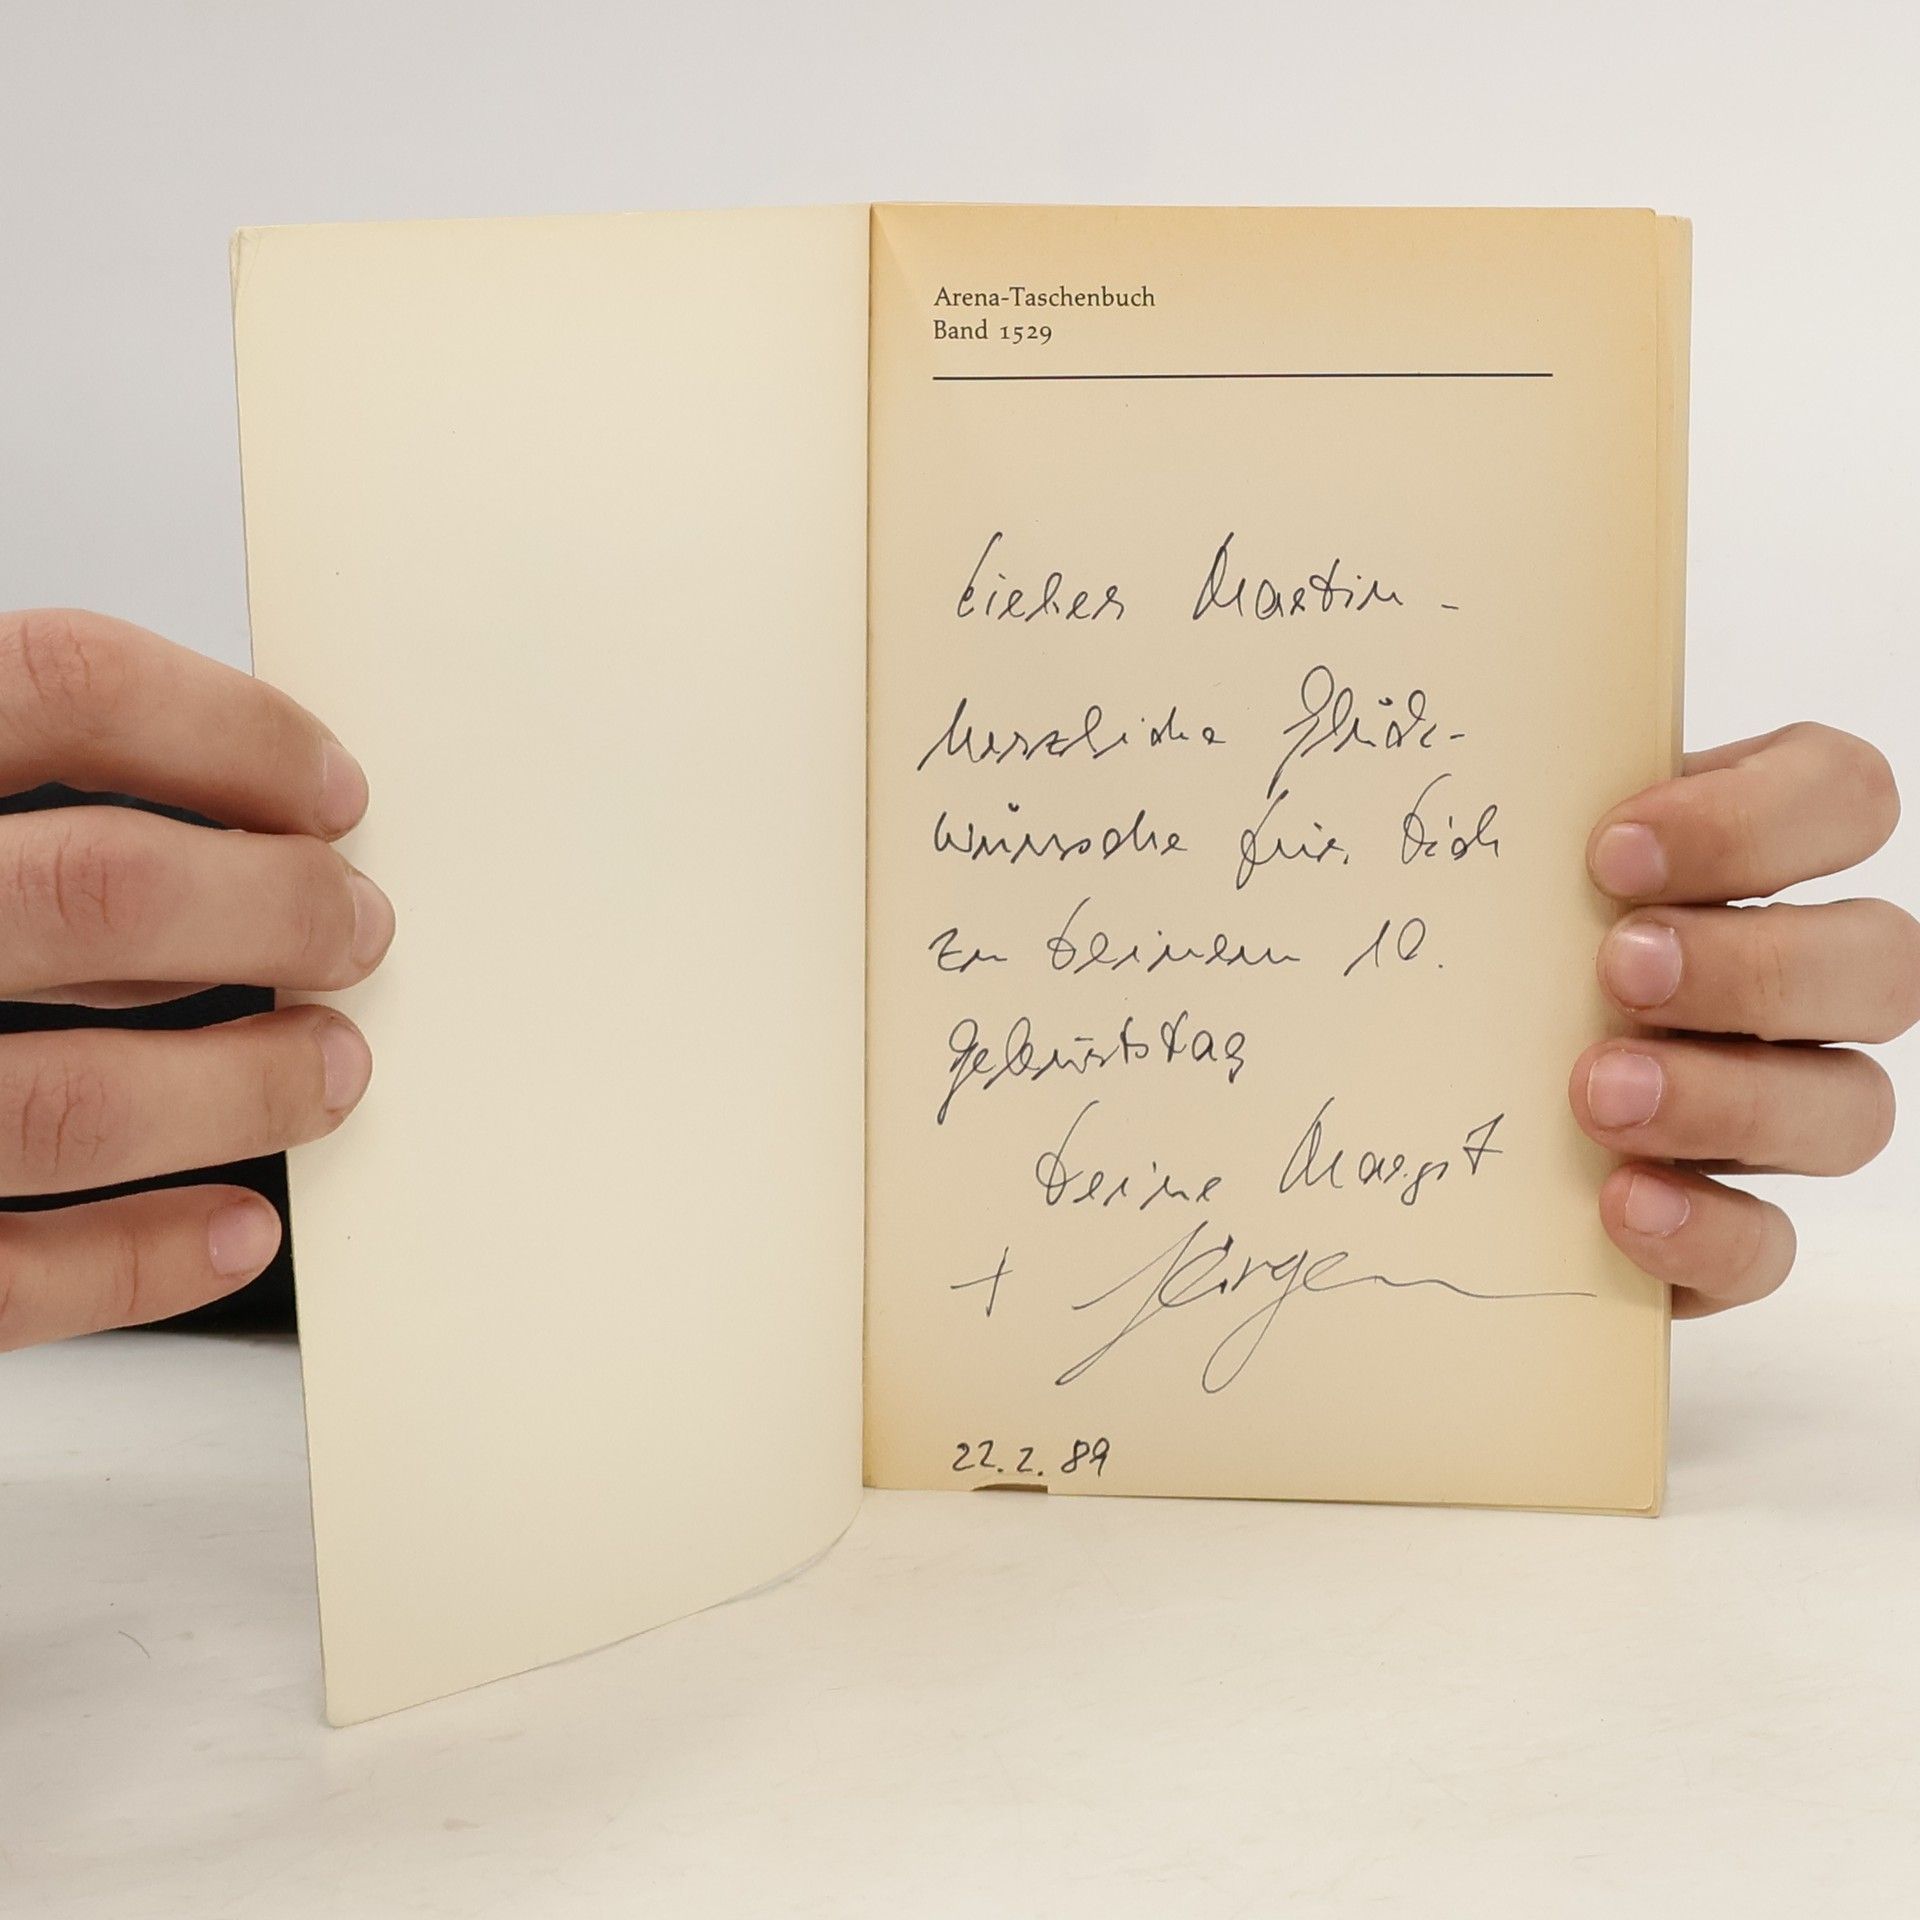 Arena-Taschenbuch
Band 1529
Lieber Martin -
herzliche Glück-
wünsche für Dich
zu Deinem 10.
Geburtstag
Deine Margit
+ Jürgen
22.2.89